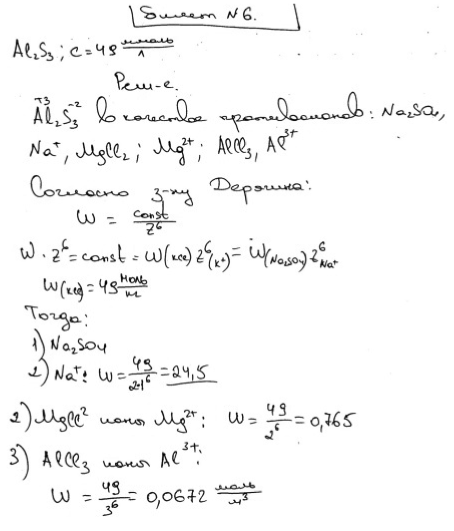 Билет N6.
Al₂S₃; c = 49 ммоль/л
Реш-е.
Al₂⁺³S₃⁻² в качестве противоионов: Na₂SO₄,
Na⁺, MgCl₂; Mg²⁺; AlCl₃, Al³⁺
Согласно з-ну Дерягина:
W = const/Z⁶
W · Z⁶ = const = W(KCl) Z⁶(K⁺) = W(Na₂SO₄) Z⁶Na⁺
W(KCl) = 49
Тогда:
1) Na₂SO₄
2) Na⁺: W = 49/2·1⁶ = 24,5
2) MgCl² ионы Mg²⁺: W = 49/2⁶ = 0,765
3) AlCl₃ ионы Al³⁺:
W = 49/3⁶ = 0,0672 моль/м³